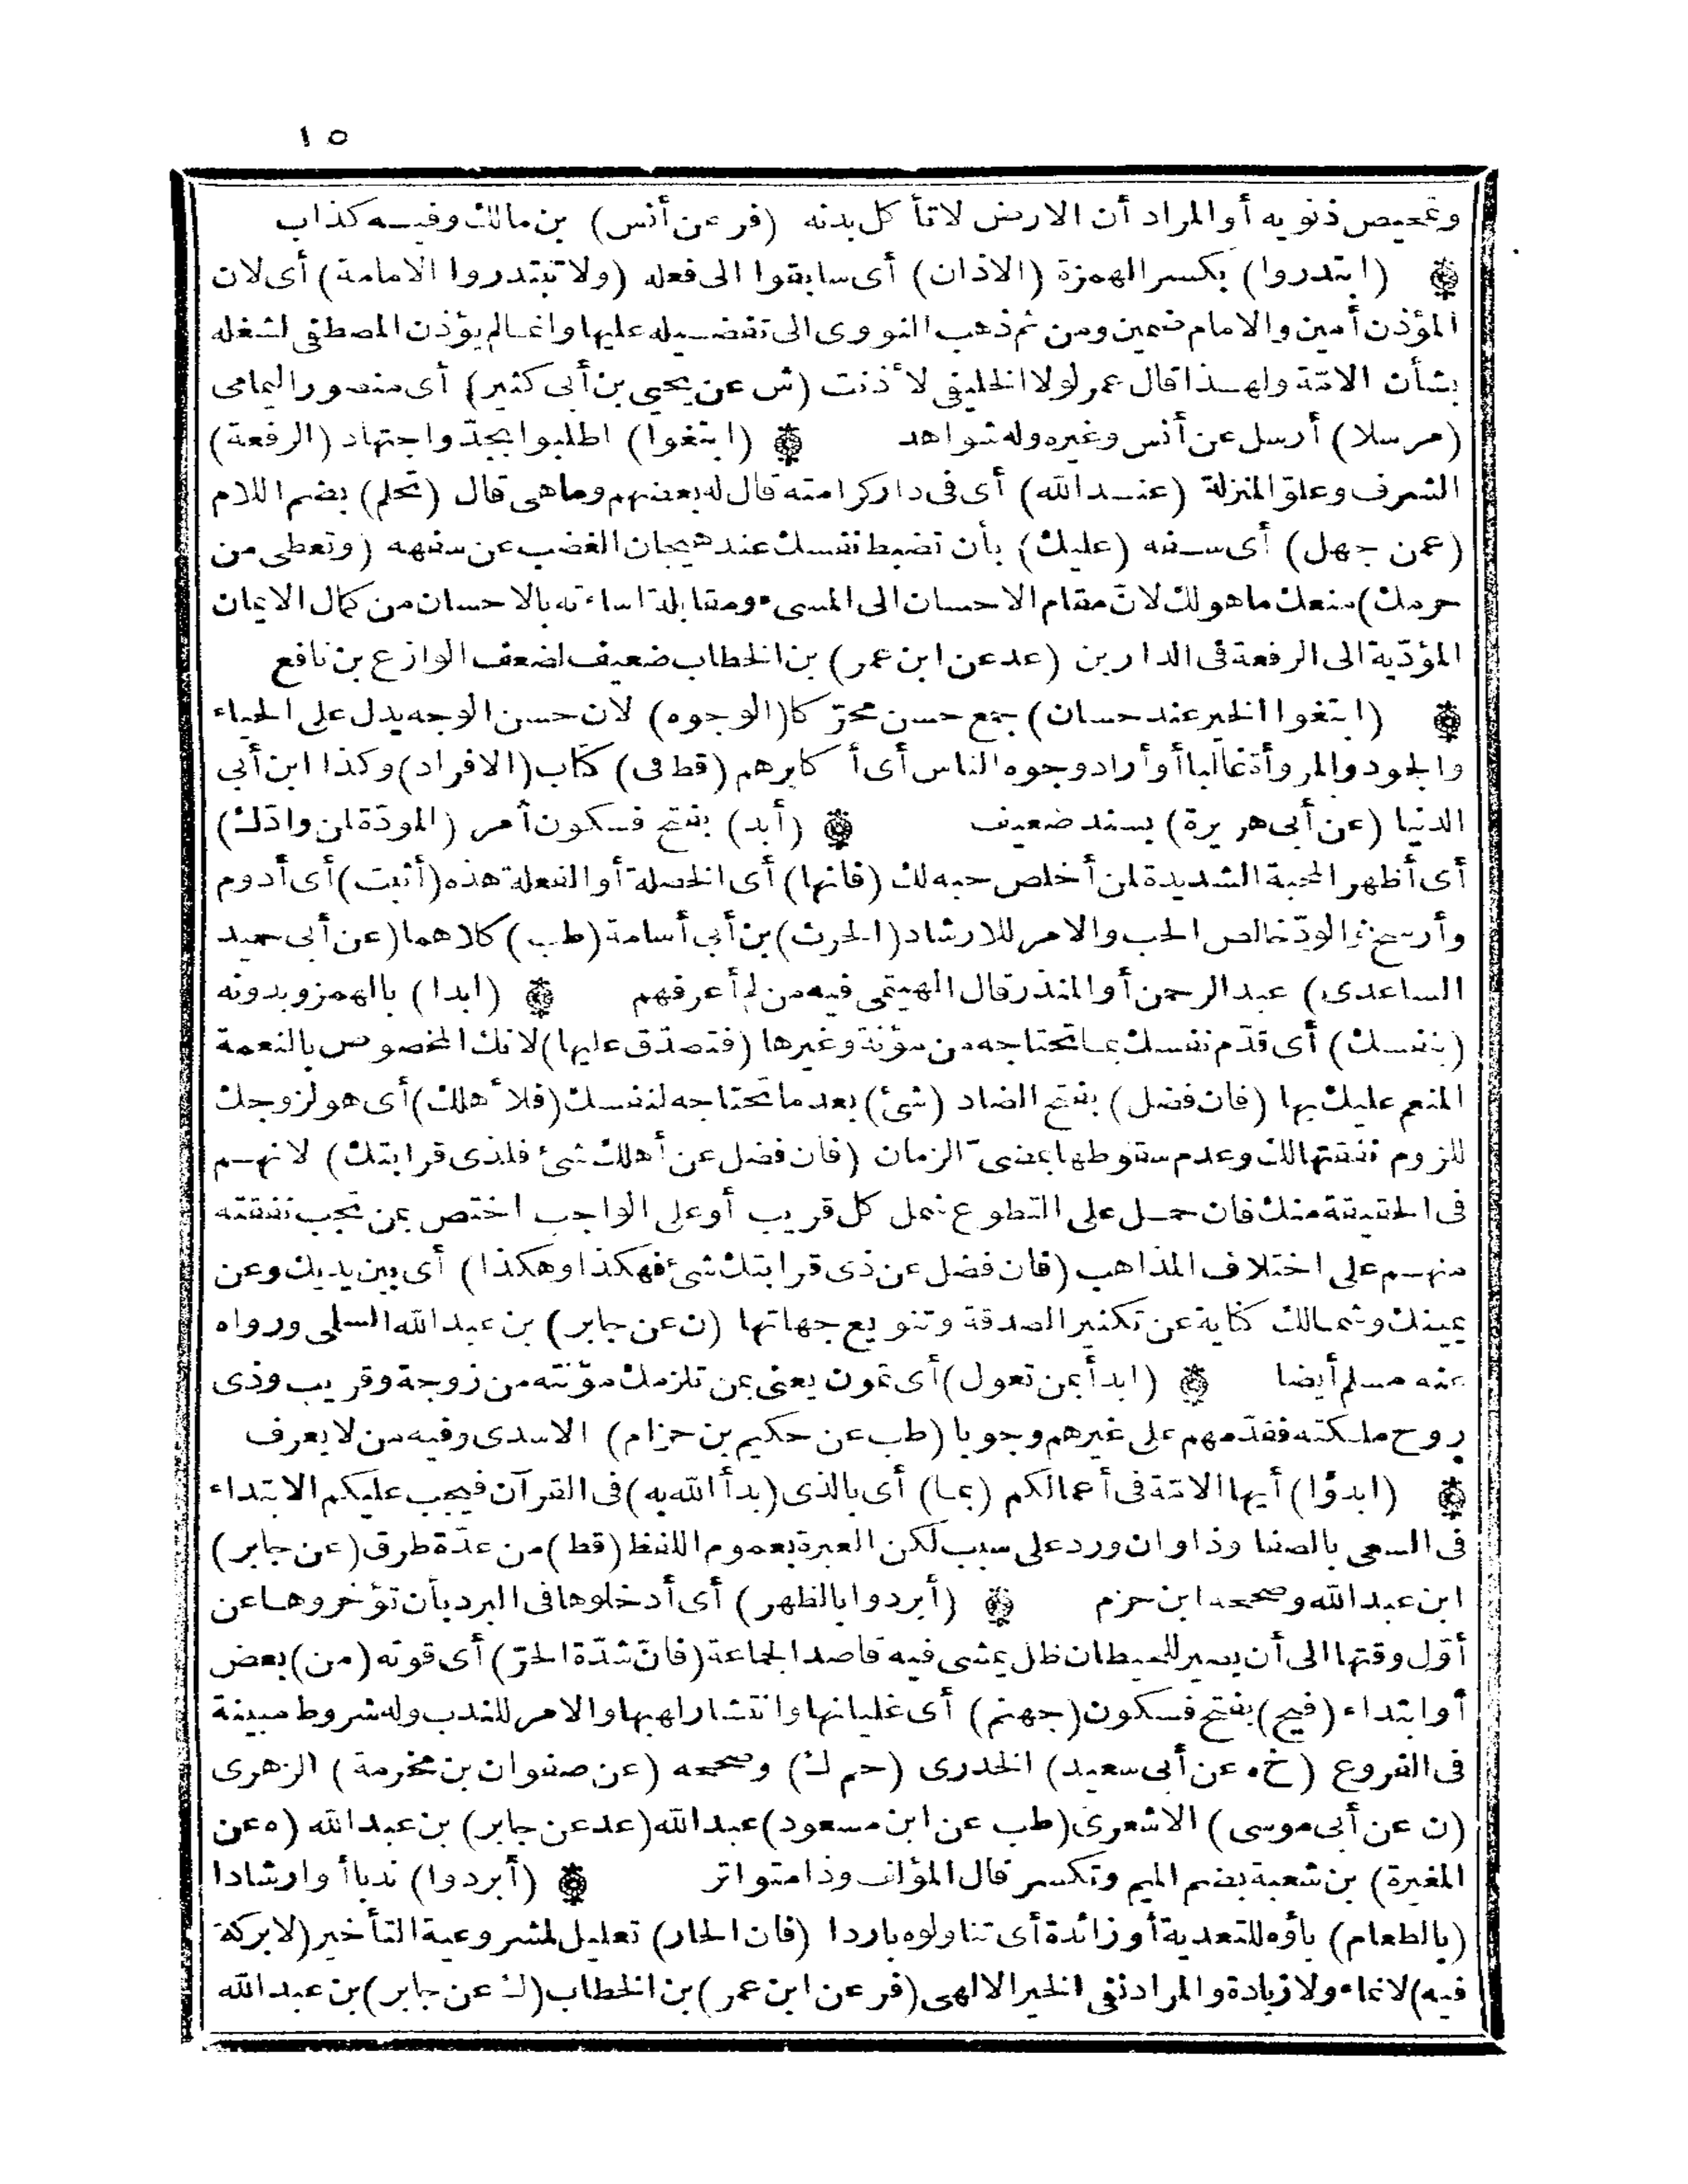 ١٥
وتمحيص ذنوبه أو المراد أن الارض لا تأكل بدنه (فر عن أنس) بن مالك وفيه كذاب
(ابتدروا) بكسر الهمزة (الاذان) أى سابقوا الى فعله (ولا تبتدروا الامامة) أى لان
المؤذن أمين والامام ضمين ومن ثم ذهب النووى الى تفضيله عليها وانما لم يؤذن المصطفى لشغله
بشأن الامّة ولهذا قال عمر لولا الخليفى لأذنت (ش عن يحيى بن أبى كثير) أى منصور اليمامى
(مرسلا) أرسل عن أنس وغيره وله شواهد (ابتغوا) اطلبوا بجدّ واجتهاد (الرفعة)
الشرف وعلوّ المنزلة (عند الله) أى فى دار كرامته قال له بعضهم وما هى قال (تحلم) بضم اللام
(عمن جهل) أى سفه (عليك) بأن تضبط نفسك عند هيجان الغضب عن سفهه (وتعطى من
حرمك) منعك ما هو لك لانّ مقام الاحسان الى المسىء ومقابلة اساءته بالاحسان من كمال الايمان
المؤدّية الى الرفعة فى الدارين (عد عن ابن عمر) بن الخطاب ضعيف لضعف الوازع بن نافع
(ابتغوا الخير عند حسان) جمع حسن محرّكا (الوجوه) لان حسن الوجه يدل على الحياء
والجود والمروأة غالبا أو أراد وجوه الناس أى أكابرهم (قط فى) كتاب (الافراد) وكذا ابن أبى
الدنيا (عن أبى هريرة) بسند ضعيف (أبد) بفتح فسكون أمر (المودّة لمن وادّك)
أى أظهر المحبة الشديدة لمن أخلص حبه لك (فانها) أى الخصلة أو الفعلة هذه (أثبت) أى أدوم
وأرسخ والودّ خالص الحب والامر للارشاد (الحرث) بن أبى أسامة (طب) كلاهما (عن أبى حميد
الساعدى) عبد الرحمن أو المنذر قال الهيتمى فيه من لم أعرفهم (ابدا) بالهمز وبدونه
(بنفسك) أى قدّم نفسك بما تحتاجه من مؤنة وغيرها (فتصدّق عليها) لانك المخصوص بالنعمة
المنعم عليك بها (فان فضل) بفتح الضاد (شئ) بعد ما تحتاجه لنفسك (فلأهلك) أى هو لزوجك
للزوم نفقتها لك وعدم سقوطها بمضىّ الزمان (فان فضل عن أهلك شئ فلذى قرابتك) لانهم
فى الحقيقة منك فان حمل على التطوع شمل كل قريب أو على الواجب اختص بمن تجب نفقته
منهم على اختلاف المذاهب (فان فضل عن ذى قرابتك شئ فهكذا وهكذا) أى بين يديك وعن
يمينك وشمالك كناية عن تكثير الصدقة وتنويع جهاتها (ن عن جابر) بن عبد الله السلمى ورواه
عنه مسلم أيضا (ابدأ بمن تعول) أى تمون يعنى بمن تلزمك مؤنته من زوجة وقريب وذى
روح ملكته فقدّمهم على غيرهم وجوبا (طب عن حكيم بن حزام) الاسدى وفيه من لا يعرف
(ابدؤا) أيها الامّة فى أعمالكم (بما) أى بالذى (بدأ الله به) فى القرآن فيجب عليكم الابتداء
فى السعى بالصفا وذا وان ورد على سبب لكن العبرة بعموم اللفظ (قط) من عدّة طرق (عن جابر)
ابن عبد الله وصححه ابن حزم (أبردوا بالظهر) أى أدخلوها فى البرد بأن تؤخروها عن
أوّل وقتها الى أن يصير للحيطان ظل يمشى فيه قاصد الجماعة (فانّ شدّة الحرّ) أى قوته (من) بعض
أو ابتداء (فيح) بفتح فسكون (جهنم) أى غليانها وانتشار لهبها والامر للندب وله شروط مبينة
فى الفروع (خ ه عن أبى سعيد) الخدرى (حم ك) وصححه (عن صفوان بن مخرمة) الزهرى
(ن عن أبى موسى) الاشعرى (طب عن ابن مسعود) عبد الله (عد عن جابر) بن عبد الله (ه عن
المغيرة) بن شعبة بضم الميم وتكسر قال المؤلف وذا متواتر (أبردوا) ندبا أوارشادا
(بالطعام) باؤه للتعدية أو زائدة أى تناولوه باردا (فان الحار) تعليل لمشروعية التأخير (لا بركة
فيه) لا نماء ولا زيادة والمراد نفى الخير الالهى (فر عن ابن عمر) بن الخطاب (ك عن جابر) بن عبد الله